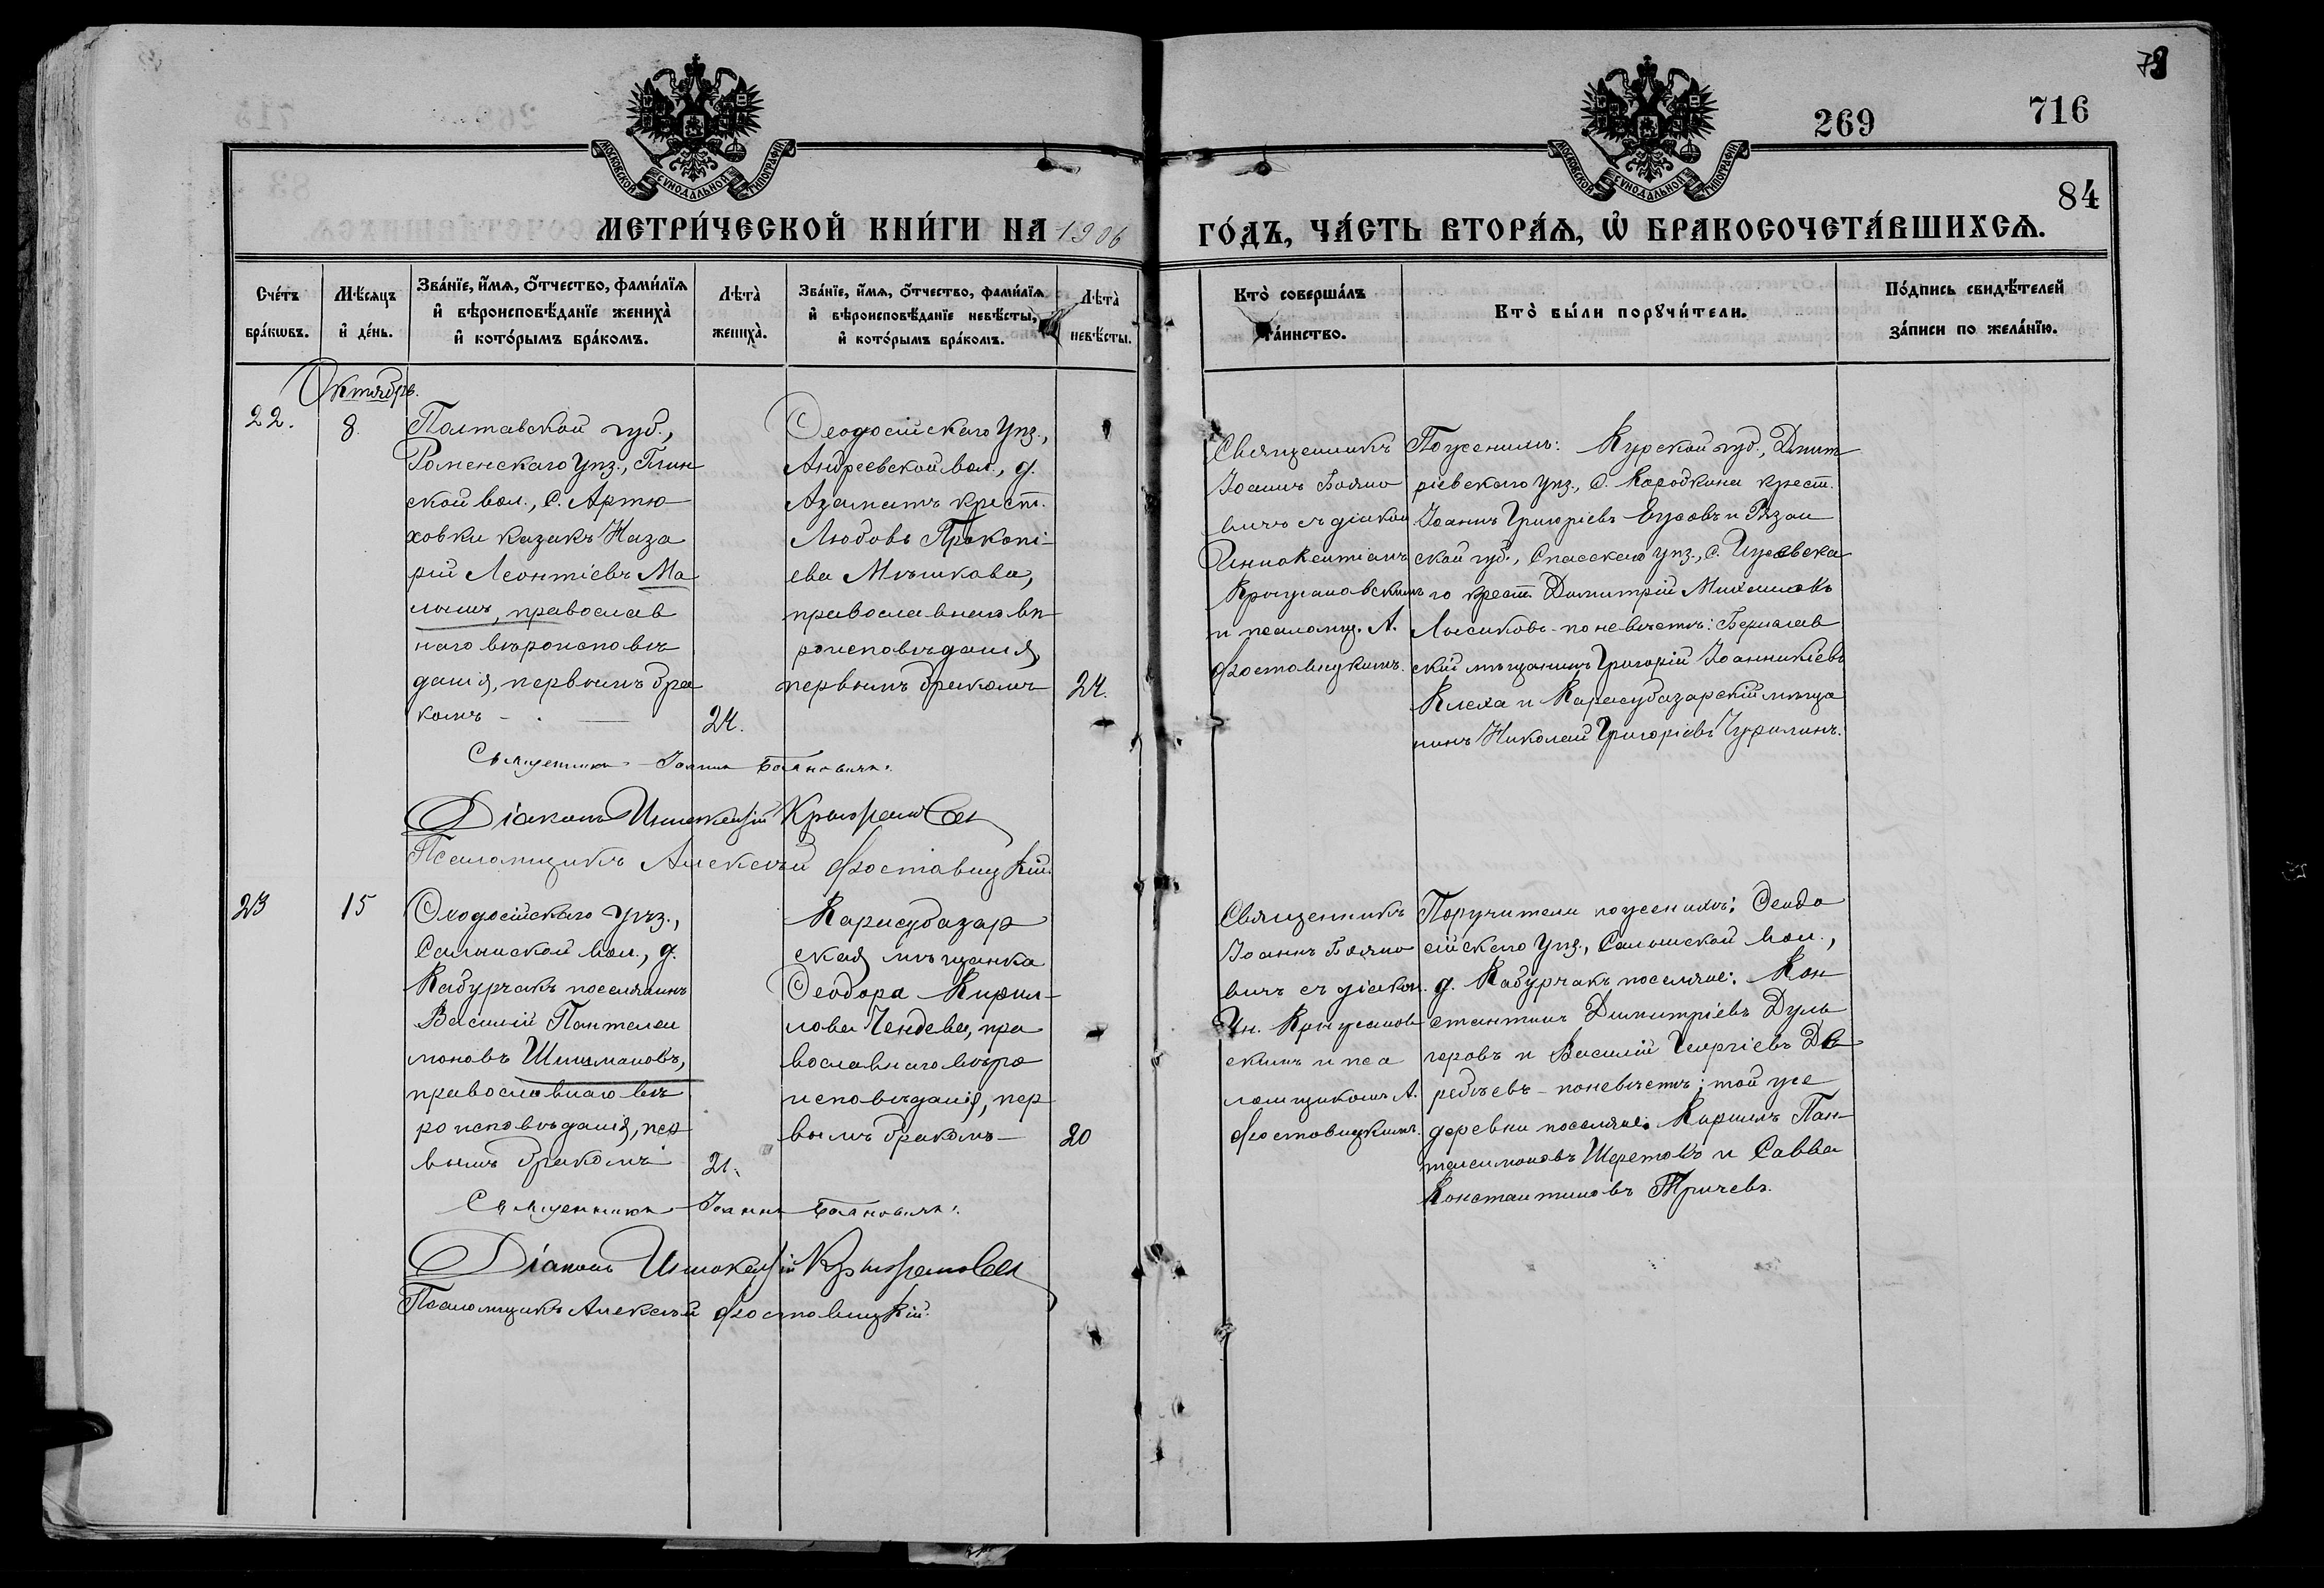 78
269
716
84
МОСКОВСКОЙ СѴНОДАЛЬНОЙ ТИПОГРАФІИ
МОСКОВСКОЙ СѴНОДАЛЬНОЙ ТИПОГРАФІИ
МЕТРИ́ЧЕСКОЙ КНИ́ГИ НА 1906
ГО́ДЪ, ЧА́СТЬ ВТОРА́Ѧ, Ѡ҆ БРАКОСОЧЕТА́ВШИХСѦ.
Сче́тъ
бра́кѡвъ.
Мѣ́сяцъ
и҆ де́нь.
Зва́нїе, и҆́мѧ, о҆́тчество, фами́лїѧ
и҆ вѣроисповѣ́данїе жениха̀
и҆ кото́рымъ бра́комъ.
Лѣта̀
жениха̀.
Зва́нїе, и҆́мѧ, о҆́тчество, фами́лїѧ
и҆ вѣроисповѣ́данїе невѣ́сты,
и҆ кото́рымъ бра́комъ.
Лѣта̀
невѣ́сты.
Кто̀ соверша́лъ
та́инство.
Кто̀ бы́ли порꙋчи́тели.
По́дпись свидѣ́телей
за́писи по жела́нїю.
Октябрь.
22.
8.
Полтавской губ.,
Роменскаго уѣз., Глин
ской вол., с. Артю
ховки казакъ Наза
рій Леонтіевъ Ма
лышъ, православ
наго вѣроисповѣ
данія, первымъ бра
комъ
24.
Ѳеодосійскаго уѣз.,
Андреевской вол., д.
Азаматъ крест.
Любовь Прокопі-
ева Мѣшкова,
православнаго вѣ
роисповѣданія,
первымъ бракомъ
24.
Священникъ
Іоаннъ Бояно
вичъ съ діакон
Иннокентіемъ
и псаломщ. А.
Ѳеостовицкимъ.
По женихѣ: Курской губ., Дмит
ріевскаго уѣз., с. крест.
Іоаннъ Григоріевъ и Рязан
ской губ., Спасскаго уѣз., с.
го крест. Димитрій
Лысиковъ - по невѣстѣ: Берислав
скій мѣщанинъ Григорій Іоанникіевъ
Клеха и Карасубазарскій мѣща
нинъ Николай Григоріевъ Чурилинъ.
Священникъ Іоаннъ Бояновичъ.
Діаконъ Иннокентій
Псаломщикъ Алексѣй
23
15
Ѳеодосійскаго уѣз.,
Салынской вол., д.
Кабурчакъ поселянинъ
Василій Пантелеи
моновъ Шишмановъ,
православнаго вѣ
роисповѣданія, пер
вымъ бракомъ
21.
Карасубазар
ская мѣщанка
Ѳеодора Кирил-
лова Чендева, пра
вославнаго вѣро
исповѣданія, пер
вымъ бракомъ
20
Священникъ
Іоаннъ Бояно
вичъ съ діакон.
Ин.
скимъ и пса
ломщикомъ А.
Поручители по женихѣ: Ѳеодо
сійскаго уѣз., Салынской вол.,
д. Кабурчакъ поселяне: Кон
стантинъ Димитріевъ Дуль
геровъ и Василій Георгіевъ Де
ребѣевъ - по невѣстѣ: той же
деревни поселяне: Кириллъ Пан
телеимоновъ Шеретовъ и Савва
Константиновъ Тричевъ.
Священникъ Іоаннъ Бояновичъ.
Діаконъ Иннокентій
Псаломщикъ Алексѣй